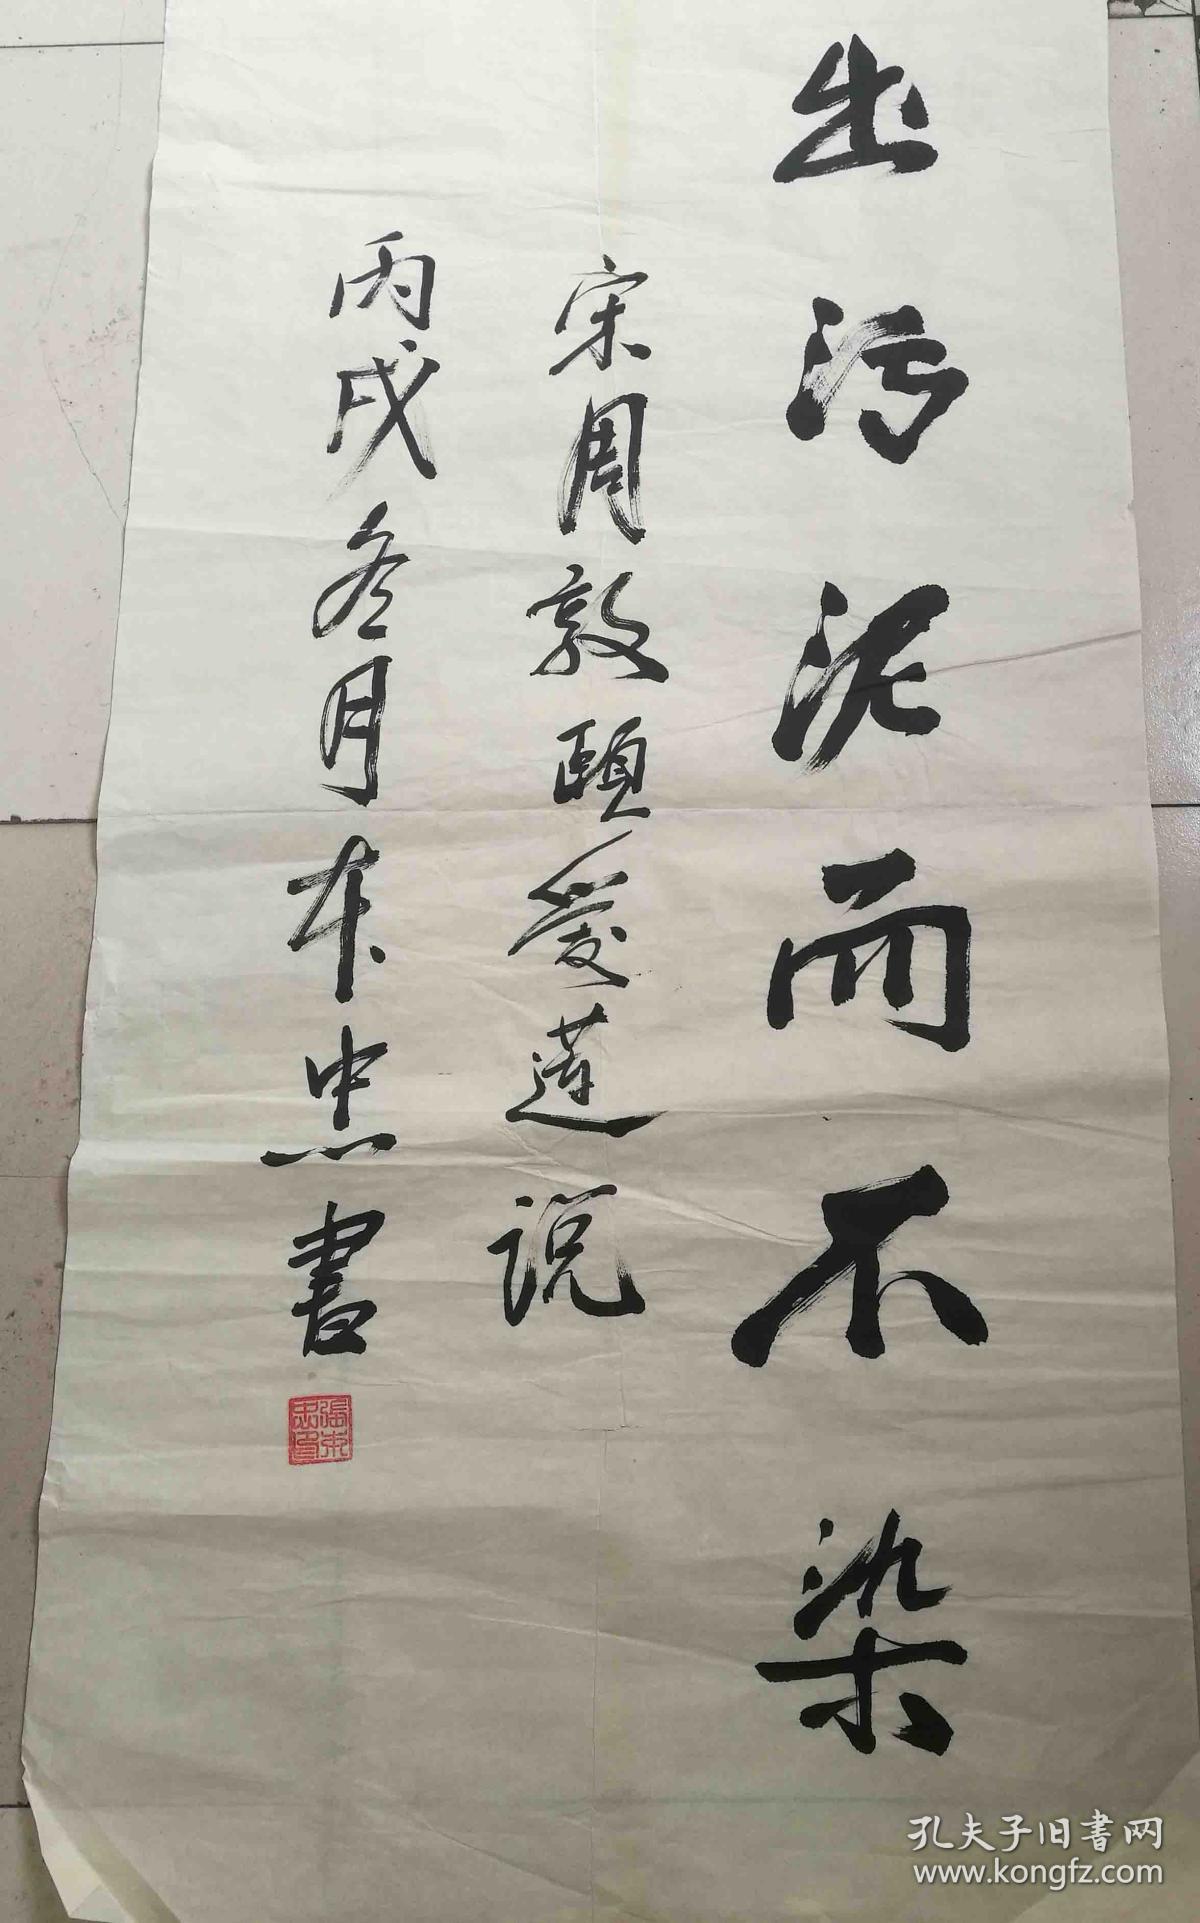 出污泥而不染
宋周敦頤愛蓮说
丙戌冬月本忠書
孔夫子旧書网
www.kongfz.com